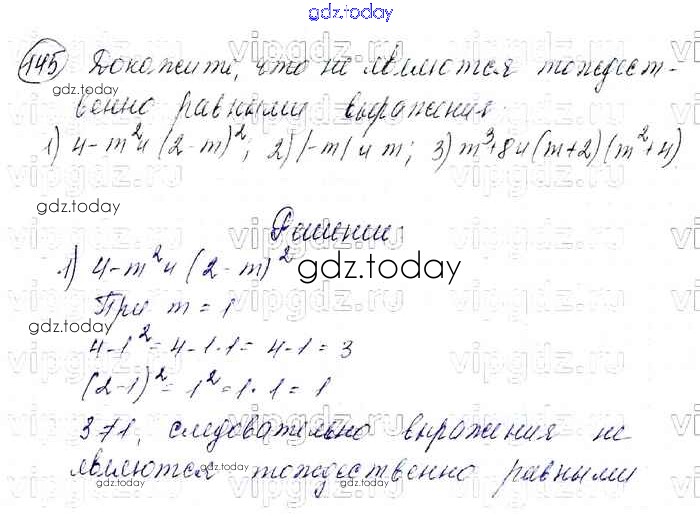 gdz.today
145 Докожити, что не являются тождест-
gdz.today
венно равными выражения.
1) 4-m² и (2-m)²; 2) |-m| и m; 3) m³+8 и (m+2)(m²+4)
gdz.today
Решение.
1) 4-m² и (2-m)²
gdz.today
При m = 1
gdz.today
4-1² = 4-1·1 = 4-1 = 3
gdz.today
(2-1)² = 1² = 1·1 = 1
3≠1, следовательно выражения не
gdz.today
являются тождественно равными
gdz.today